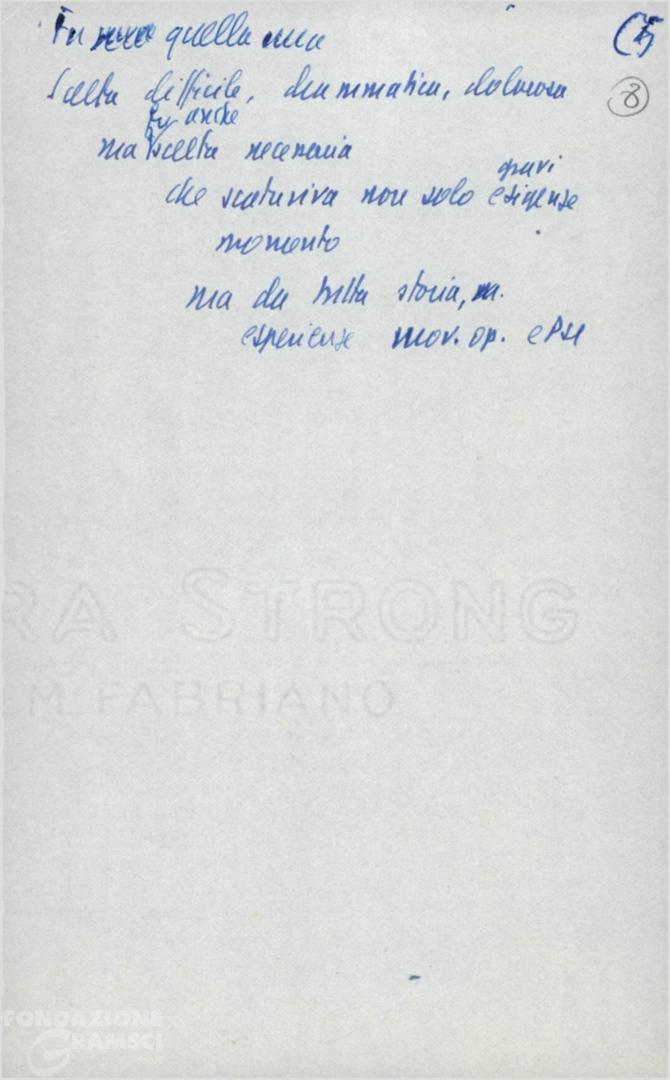 Fu quella una
Scelta difficile, drammatica, dolorosa
ma fu anche scelta necessaria
che scaturiva non solo gravi esigenze
momento
ma da tutta storia,
esperienze mov. op. e PSI
8
RA STRONG
M. FABRIANO
FONDAZIONE
GRAMSCI